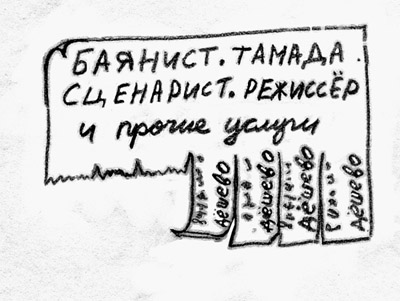 БАЯНИСТ. ТАМАДА.
СЦЕНАРИСТ. РЕЖИССЁР
и прочие услуги
дёшево
дёшево
дёшево
дёшево